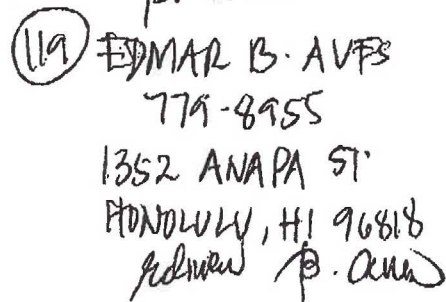 119 EDMAR B. AVES
779-8955
1352 ANAPA ST.
HONOLULU, HI 96818
Edmar B. Aves